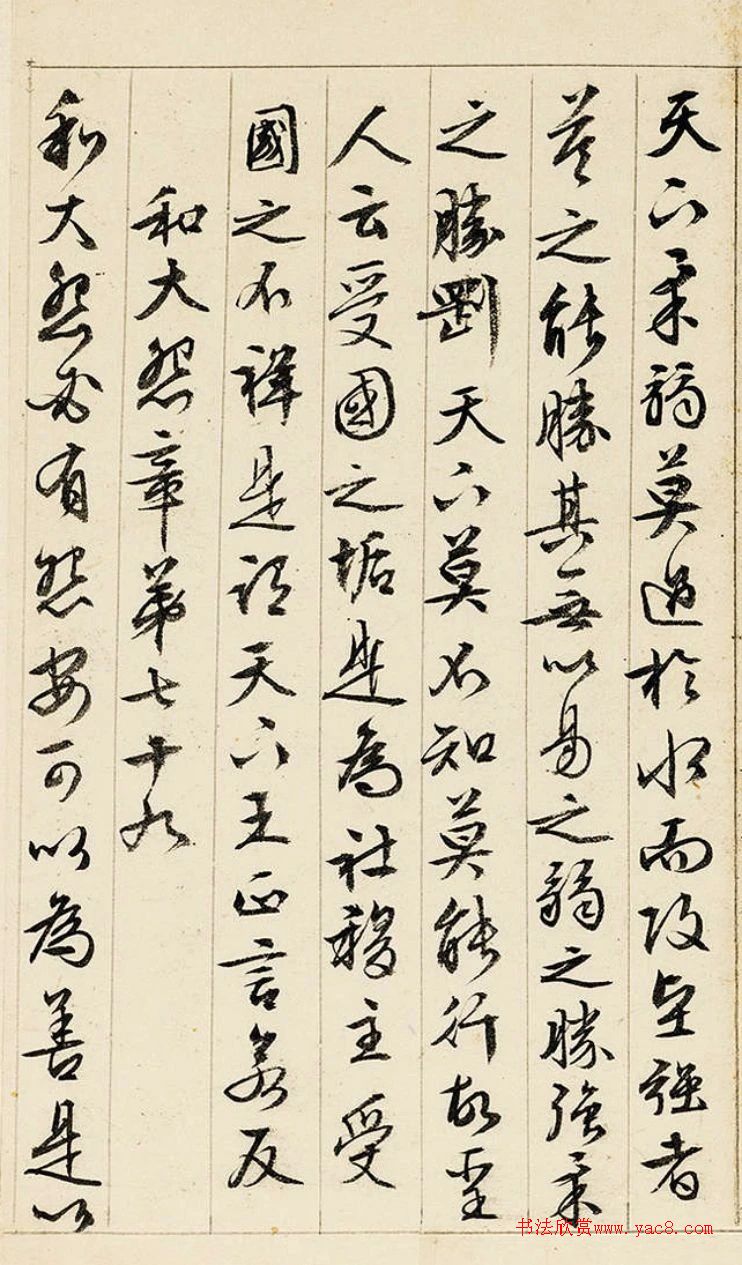 天下柔弱莫過於水而攻堅強者
莫之能勝其無以易之弱之勝強柔
之勝剛天下莫不知莫能行故聖
人云受國之垢是為社稷主受
國之不祥是謂天下王正言若反
和大怨章第七十九
和大怨必有怨安可以為善是以
书法欣赏www.yac8.com